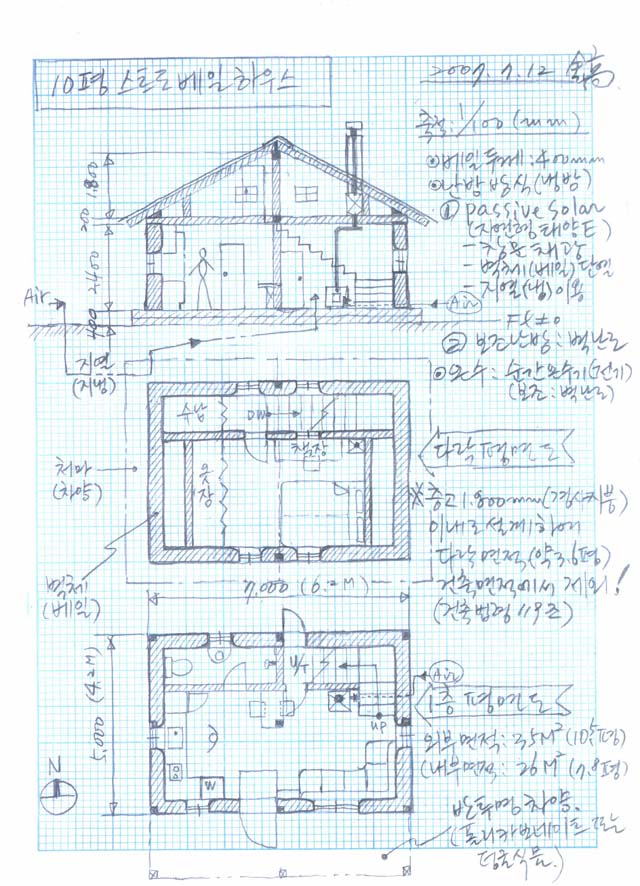 10평 스트로베일하우스
2007. 7. 12
축척: 1/100 (mm)
⊙베일두께: 400mm
⊙난방방식(냉방)
① passive solar
(자연형 태양E)
- 창문 채광
- 벽체(베일)단열
- 지열(냉)이용
② 보조난방: 벽난로
⊙온수: 순간온수기(전기)
(보조: 벽난로)
1.800
200
2400
400
Air
Air
지열
(지냉)
수납
DW
책장
옷장
처마
(차양)
벽체
(베일)
다락 평면도
※층고 1.800mm(경사지붕)
이내로 설계하여
다락면적(약 평)
건축면적에서 제외!
(건축법령 119조)
7.000 (6.2M)
5.000 (4.2M)
U/T
Air
UP
W
N
1층 평면도
외부면적: 35M² (10.5평)
(내부면적: 26M² (7.8평)
반투명 차양.
(폴리카보네이트 또는
덩굴식물.)